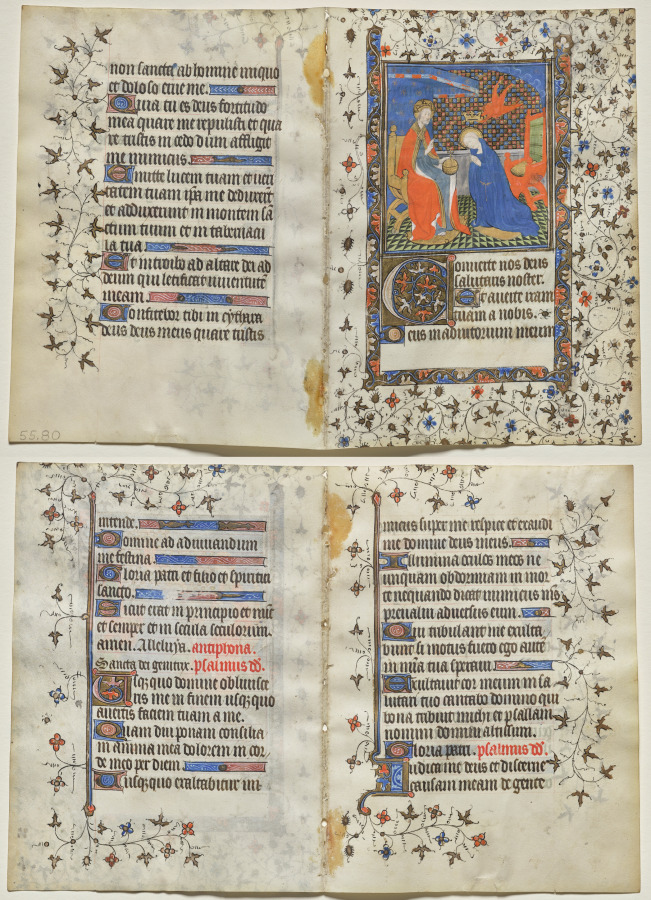 non sancta ab homine iniquo
et doloso erue me.
Quia tu es deus fortitudo
mea quare me repulisti et qua
re tristis incedo dum affligit
me inimicus.
Emitte lucem tuam et veri
tatem tuam ipa me deduxerūt
et adduxerunt in montem sā
ctum tuum et in tabernacu
la tua.
Et introibo ad altare dei ad
deum qui letificat iuventutē
meam.
Confitebor tibi in cythara
deus deus meus quare tristis
55.80
Converte nos deus
salutaris noster.
Et averte iram
tuam a nobis.
Deus in adiutorium meum
intende.
Domine ad adiuvandum
me festina.
Gloria patri et filio et spiritui
sancto.
Sicut erat in principio et nūc
et semper et in secula seculorum.
amen. Alleluya. antiphona.
Sancta dei genitrix. psalmus dd.
Usquequo domine oblivisce
ris me in finem usquequo
avertis faciem tuam a me.
Quam diu ponam consilia
in anima mea dolorem in cor
de meo per diem.
Usquequo exaltabitur ini
micus super me respice et exaudi
me domine deus meus.
Illumina oculos meos ne
unquam obdormiam in mor
te nequando dicat inimicus m̄s
prevalui adversus eum.
Qui tribulant me exulta
bunt si motus fuero ego autē
in mīa tua speravi.
Exultavit cor meum in sa
lutari tuo cantabo domino qui
bona tribuit michi et psallam
nomini domini altissimi.
Gloria patri. psalmus dd.
Iudica me deus et discerne
causam meam de gente